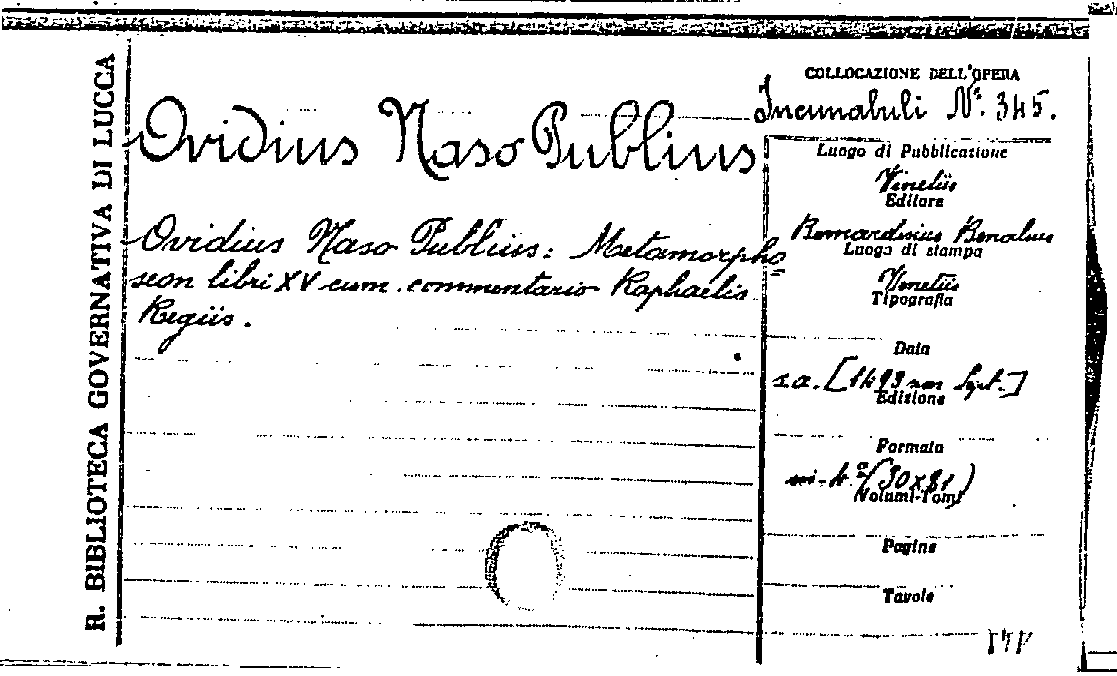 R. BIBLIOTECA GOVERNATIVA DI LUCCA
Ovidius Naso Publius
Ovidius Naso Publius: Metamorpho=
seon libri XV cum commentario Raphaelis
Regiis.
COLLOCAZIONE DELL'OPERA
Incunabuli N.° 345.
Luogo di Pubblicazione
Venetiis
Editore
Bernardinus Benalius
Luogo di stampa
Venetiis
Tipografia
Data
s.a. [1493 non Sept.]
Edizione
Formato
in-4.° (30x21)
Volumi-Tomi
Pagine
Tavole